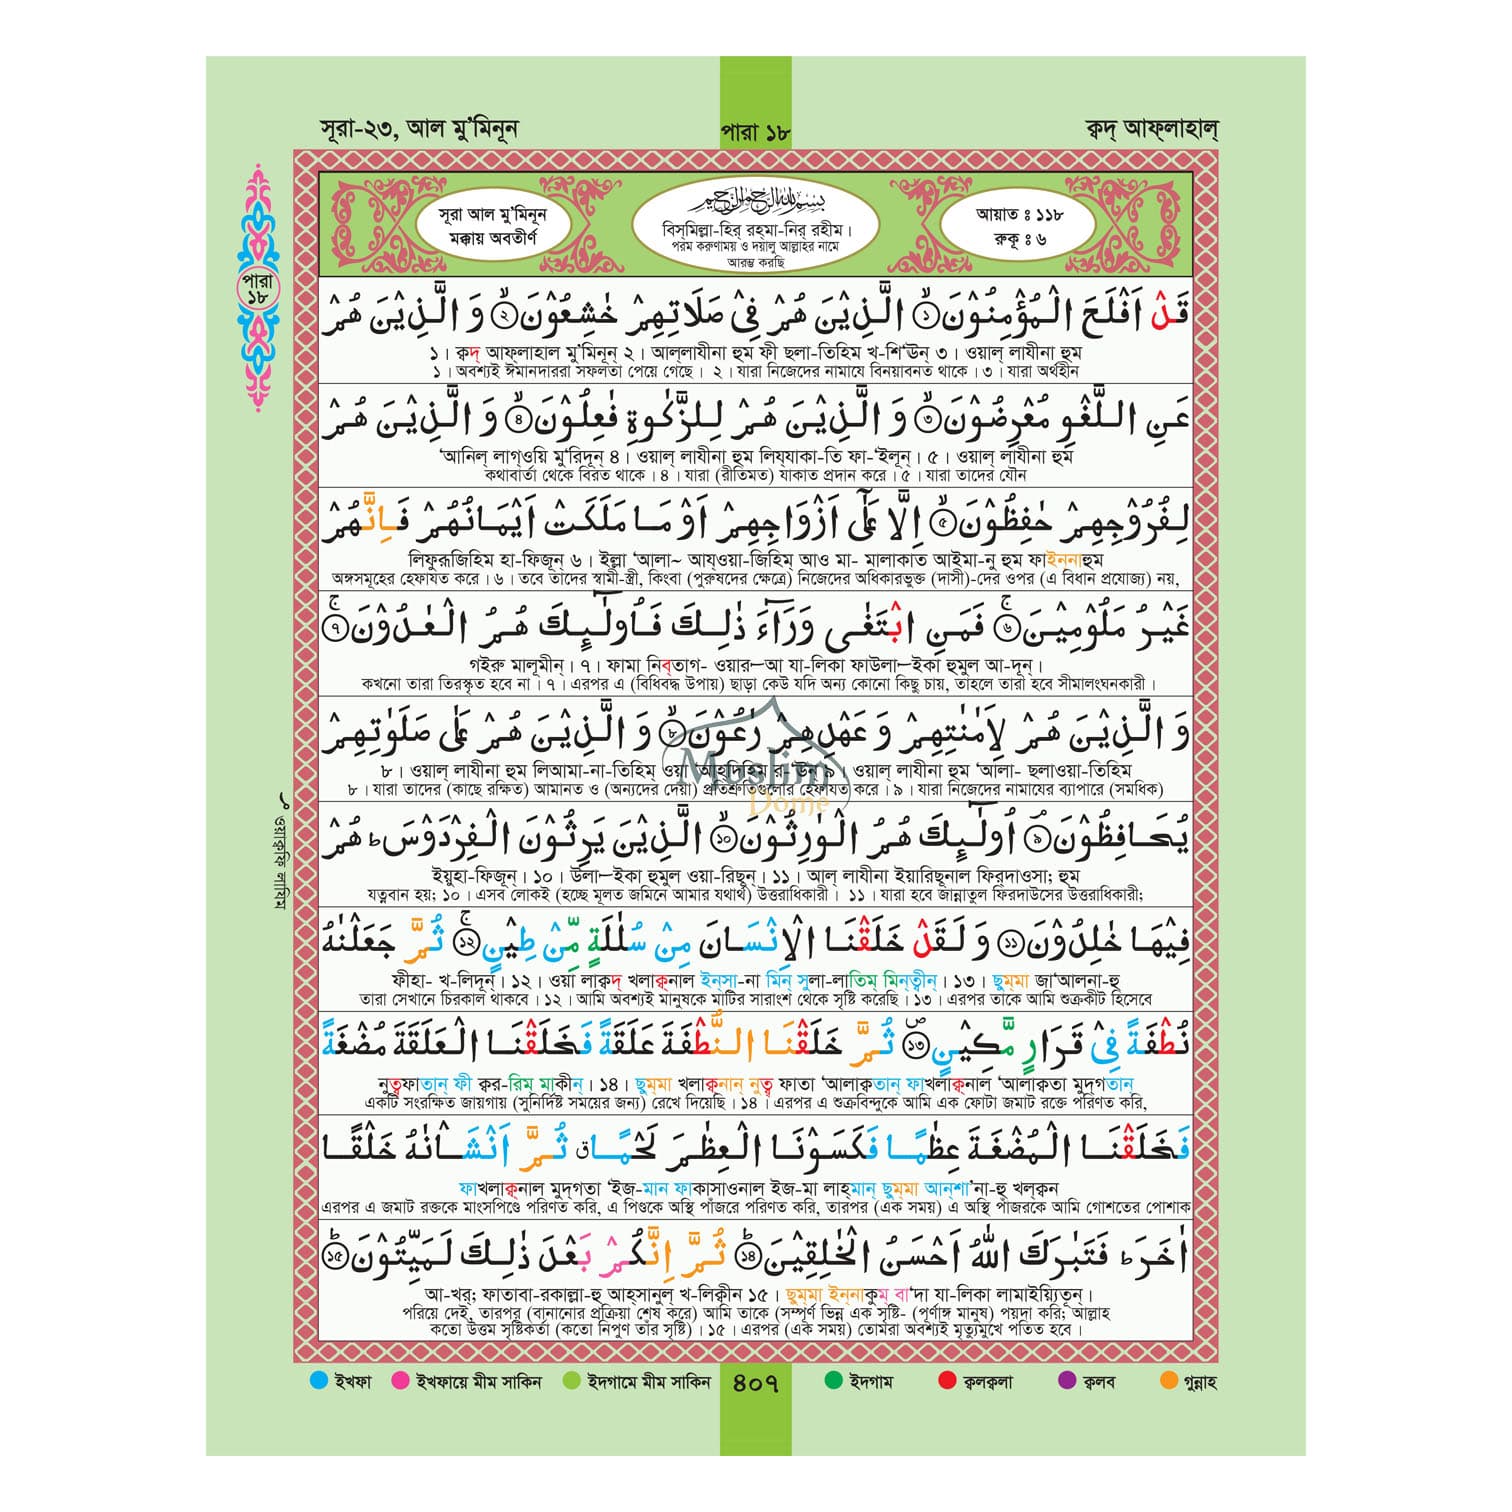 সূরা-২৩, আল মু'মিনূন
পারা ১৮
ক্বদ্ আফ্লাহাল্
সূরা আল মু'মিনূন
মক্কায় অবতীর্ণ
بِسْمِ اللهِ الرَّحْمٰنِ الرَّحِيْمِ
বিস্‌মিল্লা-হির্ রহ্‌মা-নির্ রহীম।
পরম করুণাময় ও দয়ালু আল্লাহর নামে
আরম্ভ করছি
আয়াত ঃ ১১৮
রুকূ ঃ ৬
পারা
১৮
قَدْ اَفْلَحَ الْمُؤْمِنُوْنَ ۙ﴿১﴾ الَّذِيْنَ هُمْ فِيْ صَلَاتِهِمْ خٰشِعُوْنَ ۙ﴿২﴾ وَ الَّذِيْنَ هُمْ
১। ক্বদ্ আফ্লাহাল মু'মিনূন্ ২। আল্‌লাযীনা হুম ফী ছলা-তিহিম খ-শি'ঊন্ ৩। ওয়াল্ লাযীনা হুম
১। অবশ্যই ঈমানদাররা সফলতা পেয়ে গেছে। ২। যারা নিজেদের নামাযে বিনয়াবনত থাকে। ৩। যারা অর্থহীন
عَنِ اللَّغْوِ مُعْرِضُوْنَ ۙ﴿৩﴾ وَ الَّذِيْنَ هُمْ لِلزَّكٰوةِ فٰعِلُوْنَ ۙ﴿৪﴾ وَ الَّذِيْنَ هُمْ
'আনিল্ লাগ্ওয়ি মু'রিদূন্ ৪। ওয়াল্ লাযীনা হুম লিয্যাকা-তি ফা-'ইলূন্। ৫। ওয়াল্ লাযীনা হুম
কথাবার্তা থেকে বিরত থাকে। ৪। যারা (রীতিমত) যাকাত প্রদান করে। ৫। যারা তাদের যৌন
لِفُرُوْجِهِمْ حٰفِظُوْنَ ۙ﴿৫﴾ اِلَّا عَلٰٓى اَزْوَاجِهِمْ اَوْ مَا مَلَكَتْ اَيْمَانُهُمْ فَاِنَّهُمْ
লিফুরূজিহিম হা-ফিজূন্ ৬। ইল্লা 'আলা~ আয্ওয়া-জিহিম্ আও মা- মালাকাত আইমা-নু হুম ফাইন্‌নাহুম
অঙ্গসমূহের হেফাযত করে। ৬। তবে তাদের স্বামী-স্ত্রী, কিংবা (পুরুষদের ক্ষেত্রে) নিজেদের অধিকারভুক্ত (দাসী)-দের ওপর (এ বিধান প্রযোজ্য) নয়,
غَيْرُ مَلُوْمِيْنَ ۚ﴿৬﴾ فَمَنِ ابْتَغٰى وَرَآءَ ذٰلِكَ فَاُولٰٓئِكَ هُمُ الْعٰدُوْنَ ۚ﴿৭﴾
গইরু মালূমীন্। ৭। ফামা নিব্‌তাগ- ওয়ার—আ যা-লিকা ফাউলা—ইকা হুমুল আ-দূন্।
কখনো তারা তিরস্কৃত হবে না। ৭। এরপর এ (বিধিবদ্ধ উপায়) ছাড়া কেউ যদি অন্য কোনো কিছু চায়, তাহলে তারা হবে সীমালংঘনকারী।
وَ الَّذِيْنَ هُمْ لِاَمٰنٰتِهِمْ وَ عَهْدِهِمْ رٰعُوْنَ ۙ﴿৮﴾ وَ الَّذِيْنَ هُمْ عَلٰى صَلَوٰتِهِمْ
৮। ওয়াল্ লাযীনা হুম লিআমা-না-তিহিম্ ওয়া 'আহ্‌দিহিম র-'ঊন্ ৯। ওয়াল্ লাযীনা হুম 'আলা- ছলাওয়া-তিহিম
৮। যারা তাদের (কাছে রক্ষিত) আমানত ও (অন্যদের দেয়া) প্রতিশ্রুতিগুলোর হেফাযত করে। ৯। যারা নিজেদের নামাযের ব্যাপারে (সমধিক)
Muslim
Dome
يُحَافِظُوْنَ ۘ﴿৯﴾ اُولٰٓئِكَ هُمُ الْوٰرِثُوْنَ ۙ﴿১০﴾ الَّذِيْنَ يَرِثُوْنَ الْفِرْدَوْسَ ؕ هُمْ
ইয়ুহা-ফিজূন্। ১০। উলা—ইকা হুমুল ওয়া-রিছূন্। ১১। আল্ লাযীনা ইয়ারিছূনাল ফির্‌দাওসা; হুম
যত্নবান হয়; ১০। এসব লোকই (হচ্ছে মূলত জমিনে আমার যথার্থ) উত্তরাধিকারী। ১১। যারা হবে জান্নাতুল ফিরদাউসের উত্তরাধিকারী;
ওয়াক্বফি লাযিম
فِيْهَا خٰلِدُوْنَ ﴿১১﴾ وَ لَقَدْ خَلَقْنَا الْاِنْسَانَ مِنْ سُلٰلَةٍ مِّنْ طِيْنٍ ۚ﴿১২﴾ ثُمَّ جَعَلْنٰهُ
ফীহা- খ-লিদূন্। ১২। ওয়া লাক্বদ্ খলাক্বনাল ইন্‌সা-না মিন্ সুলা-লাতিম্ মিন্‌ত্বীন্। ১৩। ছুম্‌মা জা'আলনা-হু
তারা সেখানে চিরকাল থাকবে। ১২। আমি অবশ্যই মানুষকে মাটির সারাংশ থেকে সৃষ্টি করেছি। ১৩। এরপর তাকে আমি শুক্রকীট হিসেবে
نُطْفَةً فِيْ قَرَارٍ مَّكِيْنٍ ۪﴿১৩﴾ ثُمَّ خَلَقْنَا النُّطْفَةَ عَلَقَةً فَخَلَقْنَا الْعَلَقَةَ مُضْغَةً
নুত্বফাতান্ ফী ক্বর-রিম মাকীন্। ১৪। ছুম্‌মা খলাক্বনান্ নুত্ব ফাতা 'আলাক্বতান্ ফাখলাক্বনাল 'আলাক্বতা মুদ্‌গতান্
একটি সংরক্ষিত জায়গায় (সুনির্দিষ্ট সময়ের জন্য) রেখে দিয়েছি। ১৪। এরপর এ শুক্রবিন্দুকে আমি এক ফোটা জমাট রক্তে পরিণত করি,
فَخَلَقْنَا الْمُضْغَةَ عِظٰمًا فَكَسَوْنَا الْعِظٰمَ لَحْمًا ۗ ثُمَّ اَنْشَاْنٰهُ خَلْقًا
ফাখলাক্বনাল মুদ্‌গতা 'ইজ-মান ফাকাসাওনাল ইজ-মা লাহ্‌মান্ ছুম্‌মা আন্‌শা'না-হু খল্‌ক্বন
এরপর এ জমাট রক্তকে মাংসপিণ্ডে পরিণত করি, এ পিণ্ডকে অস্থি পাঁজরে পরিণত করি, তারপর (এক সময়) এ অস্থি পাঁজরকে আমি গোশতের পোশাক
اٰخَرَ ؕ فَتَبٰرَكَ اللّٰهُ اَحْسَنُ الْخٰلِقِيْنَ ؕ﴿১৪﴾ ثُمَّ اِنَّكُمْ بَعْدَ ذٰلِكَ لَمَيِّتُوْنَ ؕ﴿১৫﴾
আ-খর্; ফাতাবা-রকাল্লা-হু আহ্‌সানুল্ খ-লিক্বীন ১৫। ছুম্‌মা ইন্‌নাকুম্ বা'দা যা-লিকা লামাইয়্যিতূন্।
পরিয়ে দেই, তারপর (বানানোর প্রক্রিয়া শেষ করে) আমি তাকে (সম্পূর্ণ ভিন্ন এক সৃষ্টি- (পূর্ণাঙ্গ মানুষ) পয়দা করি; আল্লাহ
কতো উত্তম সৃষ্টিকর্তা (কতো নিপুণ তাঁর সৃষ্টি)। ১৫। এরপর (এক সময়) তোমরা অবশ্যই মৃত্যুমুখে পতিত হবে।
ইখফা ইখফায়ে মীম সাকিন ইদগামে মীম সাকিন ৪০৭ ইদগাম ক্বলক্বলা ক্বলব গুন্নাহ